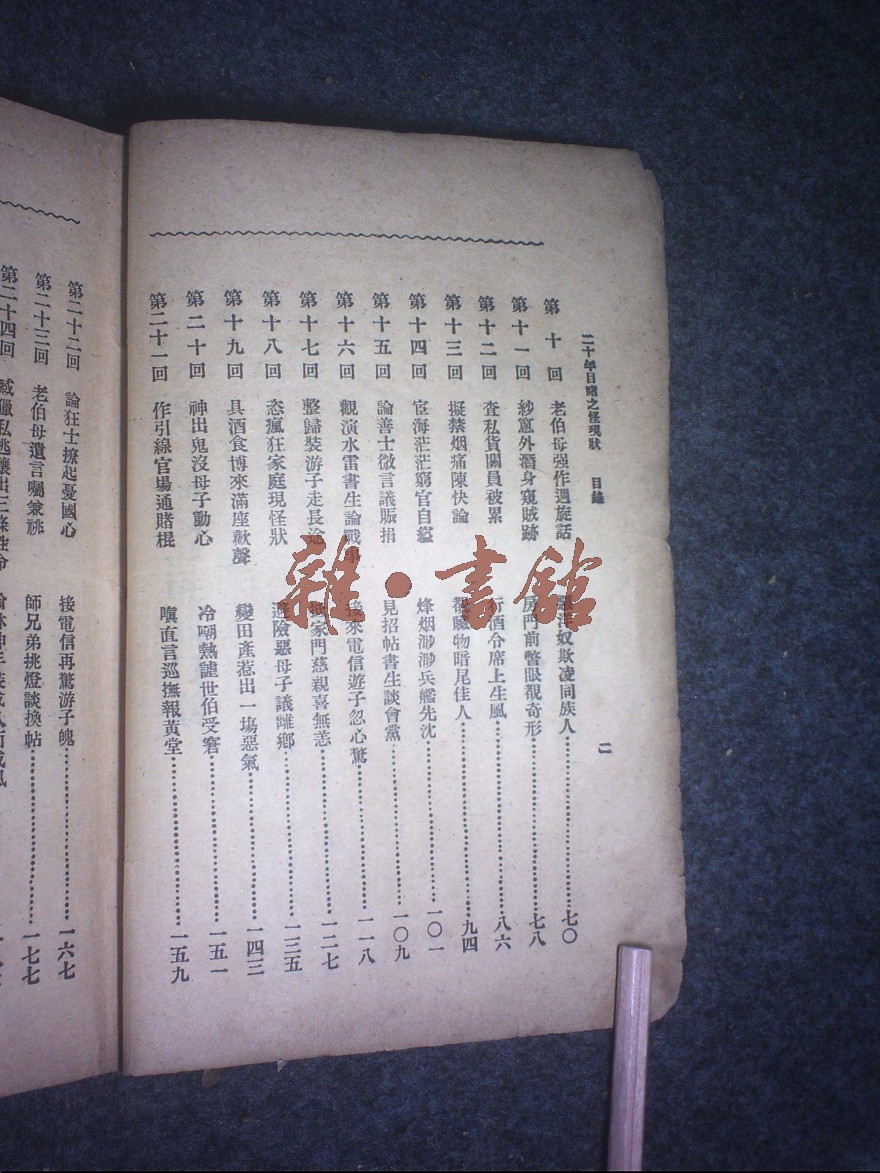 二十年目睹之怪現狀　目錄
二
第十回　老伯母强作週旋話　惡洋奴欺凌同族人……七〇
第十一回　紗窻外潛身窺賊跡　房門前瞥眼覩奇形……七八
第十二回　查私貨關員被累　行酒令席上生風……八六
第十三回　擬禁烟痛陳快論　覩贓物暗尾佳人……九四
第十四回　宦海茫茫窮官自縊　烽烟渺渺兵艦先沈……一〇一
第十五回　論善士微言議賑捐　見招帖書生談會黨……一〇九
第十六回　觀演水雷書生論戰事　接來電信遊子忽心驚……一一八
第十七回　整歸裝游子走長途　抵家門慈親喜無恙……一二七
第十八回　恣瘋狂家庭現怪狀　避險惡母子議離鄉……一三五
第十九回　具酒食博來滿座歡聲　變田產惹出一塲惡氣……一四三
第二十回　神出鬼沒母子動心　冷嘲熱謔世伯受窘……一五一
第二十一回　作引線官場通賭棍　嗔直言巡撫報黃堂……一五九
第二十二回　論狂士撩起憂國心　接電信再驚游子魄……一六七
第二十三回　老伯母遺言囑兼祧　師兄弟挑燈談換帖……一七七
第二十四回　臧獲私逃釀出三條性命
雜·書館